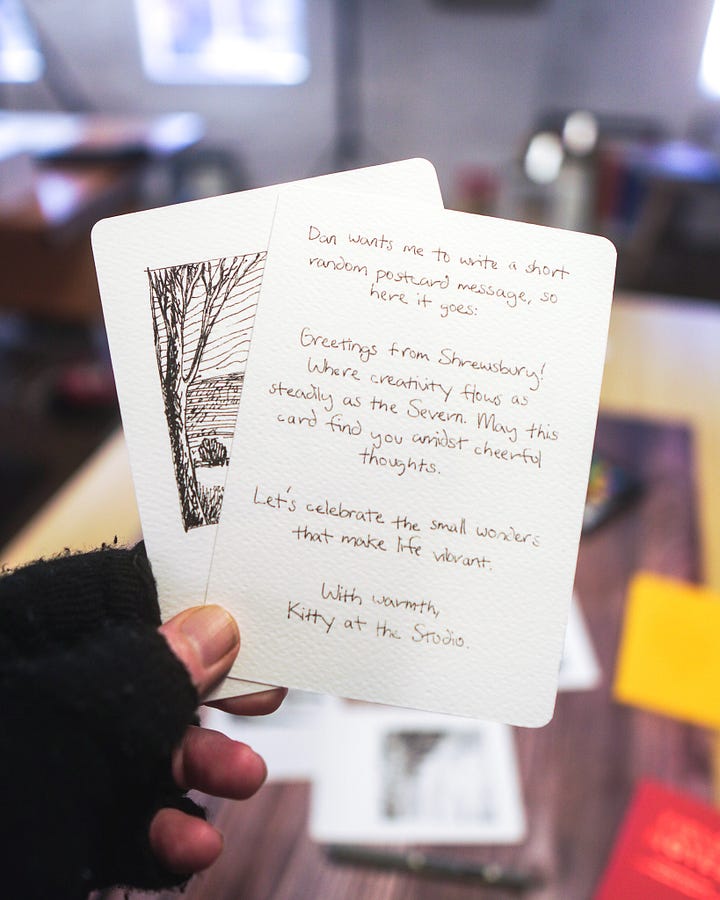 Dan wants me to write a short
random postcard message, so
here it goes:
Greetings from Shrewsbury!
Where creativity flows as
steadily as the Severn. May this
card find you amidst cheerful
thoughts.
Let's celebrate the small wonders
that make life vibrant.
With warmth,
Kitty at the Studio.